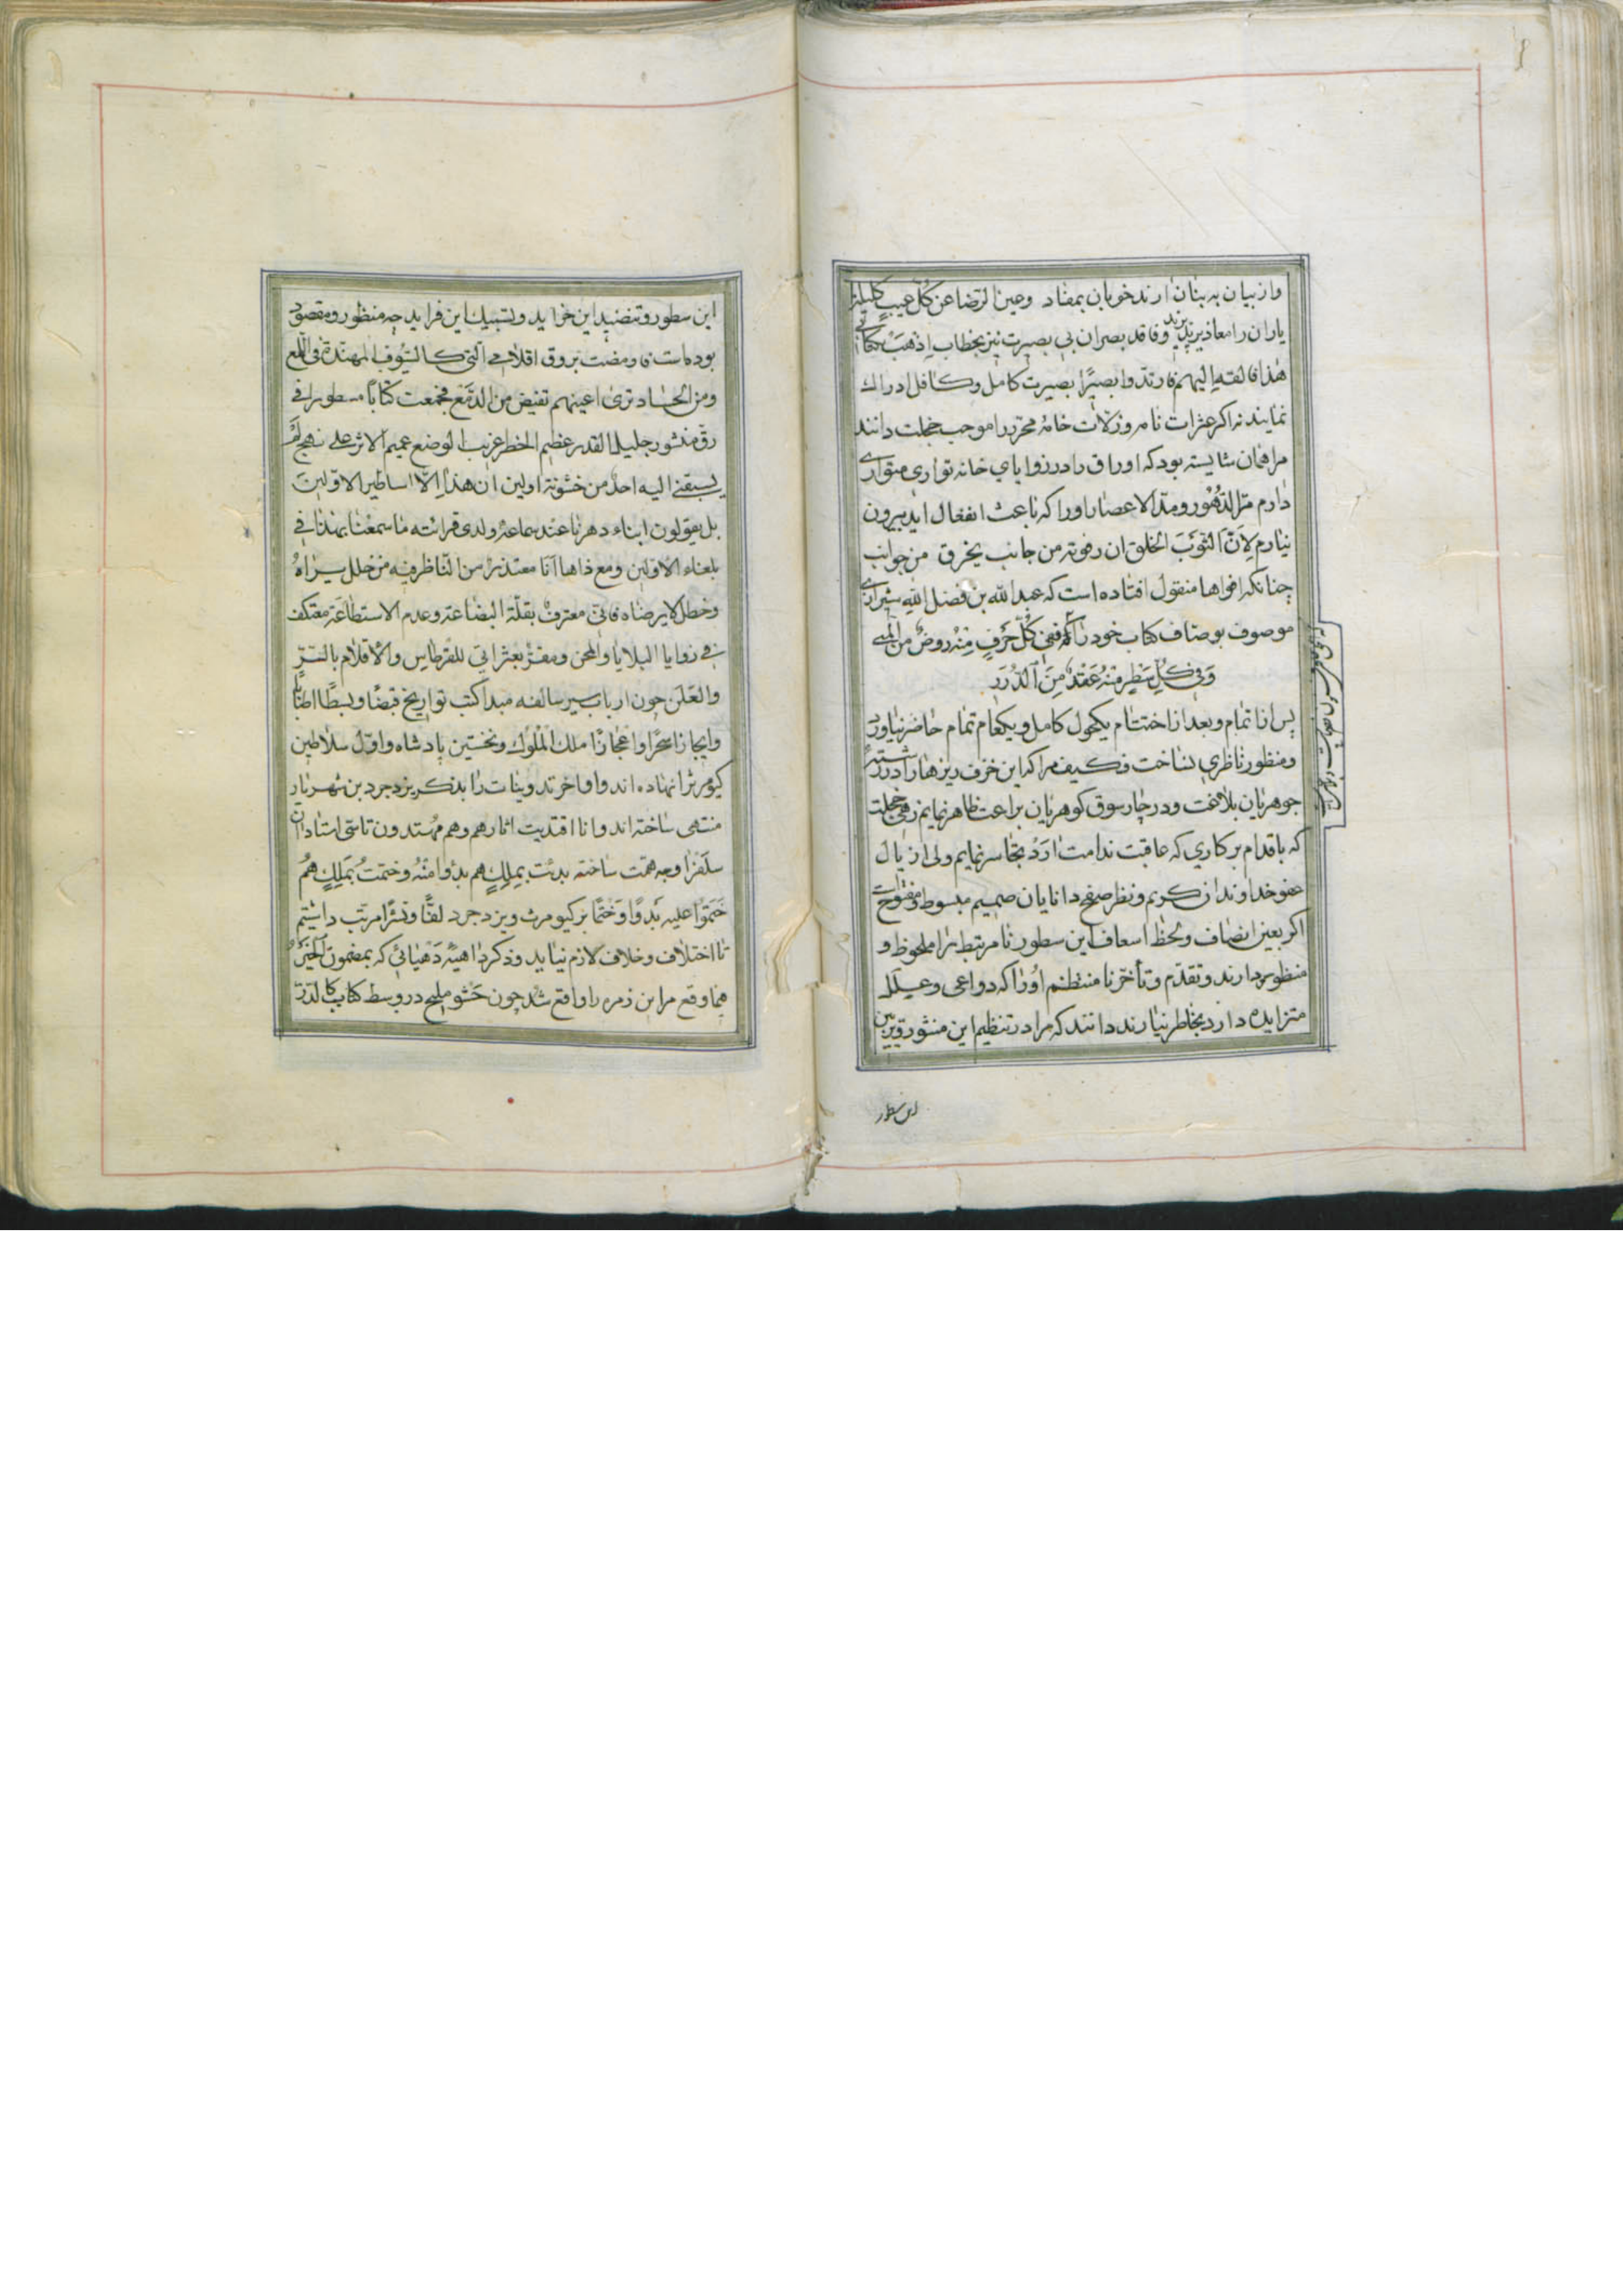 واز بیان به بنان ارند خوبان بمفاد وعین الرضا عن کل عیب کلیلة
یاران را معاذیر پذیرند وفاقد بصران بی بصیرت نیز بخطاب اذهب بکتابی
هذا فالقه الیهم فارتد وا بصیرا بصیرت کامل وکافل ادراک
نمایند نه اکر عثرات نامه وزلات خامۀ محرر را موجب خجلت دانند
مرا همان شایسته بود که اوراق را در زوایای خانه تواری متواری
دارم مر الدهور ومد الاعصار اورا که باعث انفعال اید بیرون
نیارم لان الثوب الخلق ان رفوته من جانب یخرق من جوانب
چنانکه افواها منقول افتاده است که عبدالله بن فضل الله شیرازی
موصوف بوصاف کتاب خود را که ففی کل حرف منه روض من المنی
وفی کل سطر منه عقد من الدرر
پس از اتمام وبعد از اختتام بکحول کامل وبکعام تمام حاضر نیاورد
ومنظور ناظری نساخت فکیف مرا که این خزف ریزها را در رشتۀ
جوهریان بلاغت ودر چار سوق کوهریان براعت ظاهر نمایم زهی خجلت
که باقدام بر کاری که عاقبت ندامت ارد تجاسر نمایم ولی اذیال
عفو خداوندان کریم ونظر صفح دانایان صمیم مبسوط ومفتوح
اکر بعین انصاف ولحظ اسعاف این سطور نا مرتبط را ملحوظ و
منظور دارند وتقدم وتأخر نا منتظم اورا که دواعی وعلل
متزایده دارد بخاطر نیارند دانند که مرا در تنظیم این منثور وتزیین
این سطور
این سطور وتنضید این خراید وتسبیک این فراید چه منظور ومقصود
بوده است فاومضت بروق اقلامی التی کالسیوف المهندة فی اللمع
ومن الحساد تری اعینهم تفیض من الدمع فجمعت کتابا مسطورا فی
رق منشور جلیل القدر عظیم الخطر غریب الوضع عمیم الاثر علی نهج لم
یسبقنی الیه احد من خشونة اولین ان هذا الا اساطیر الاولین
بل یقولون ابناء دهرنا عند سماعه ولدی قرائته ما سمعنا بهذا فی
بلغاء الاولین ومع ذا ها انا معتذر من الناظر فیه من خلل یراه
وخطل لا یرضاه فانی معترف بقلة البضاعة وعدم الاستطاعة معتکف
فی زوایا البلایا والمحن ومقر بعثراتی للقرطاس والاقلام بالسر
والعلن چون ارباب سیر سالفه مبدا کتب تواریخ قبضا وبسطا اطنابا
وایجازا سحرا واعجازا ملک الملوک ونخستین پادشاه واول سلاطین
کیومرث را نهاده اند واواخر تدوینات را بذکر یزدجرد بن شهریار
منتهی ساخته اند وانا اقتدیت اثارهم وهم مهتدون تاسی استادان
سلف را وجه همت ساخته بدئت بملک هم بدؤا منه وختمت بملک هم
ختموا علیه بدوا وختما بر کیومرث ویزدجرد لفا ونشرا مرتب داشتیم
تا اختلاف وخلاف لازم نیاید وذکر داهیۀ دهیائی که بمضمون الخیر
فیما وقع مر این زمره را واقع شد چون حشو ملیح در وسط کتاب کالدرر